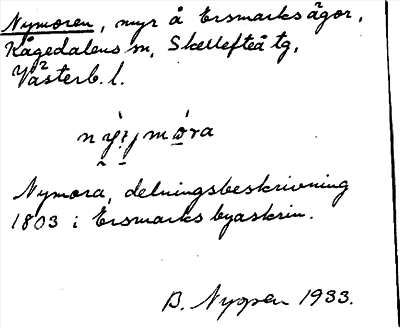 Nymoren, myr å Ersmarksägor,
Kågedalens sn, Skellefteå tg,
Västerb. l.
Nymora, delningsbeskrivning
1803 i Ersmarks byaskrin.
B. Nyspen 1933.